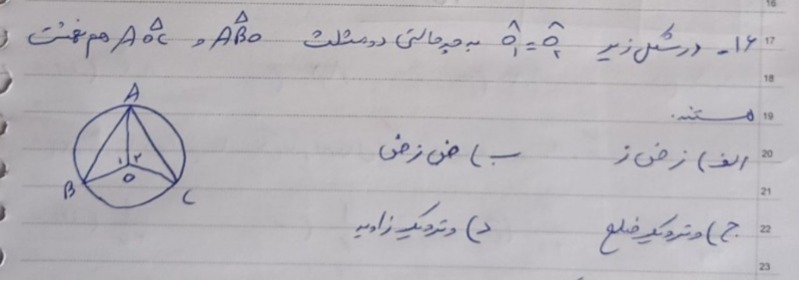 ۱۶- در شکل زیر Ô₁ = Ô₂ به چه حالتی دو مثلث ABO و AOC هم نهشت
هستند.
الف) ز ض ز ب) ض ز ض
ج) وتر و یک ضلع د) وتر و یک زاویه
A
۱ ۲
O
B C
16
17
18
19
20
21
22
23